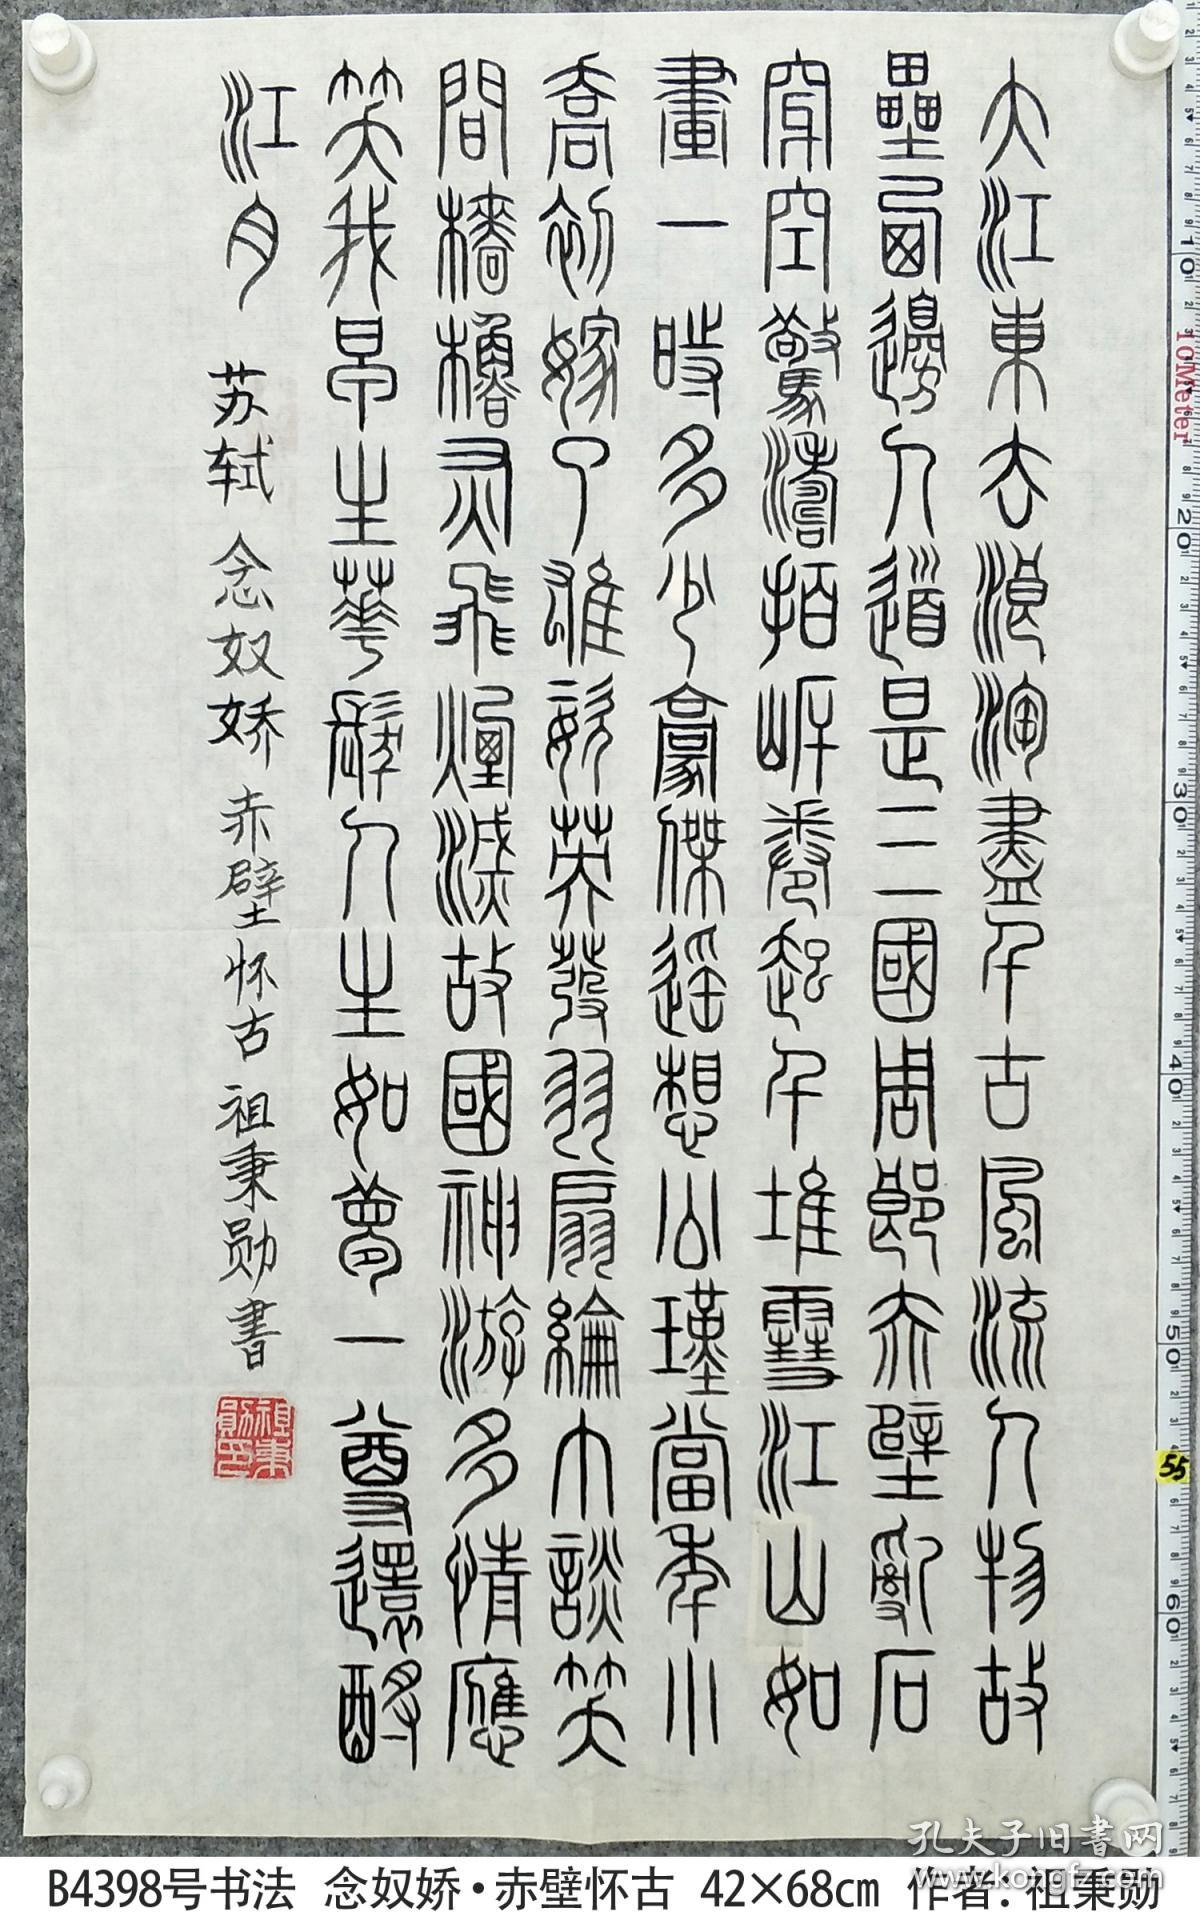 大江東去浪淘盡千古風流人物故
壘西邊人道是三國周郎赤壁亂石
穿空驚濤拍岸卷起千堆雪江山如
畫一時多少豪傑遥想公瑾當年小
喬初嫁了雄姿英發羽扇綸巾談笑
間檣櫓灰飛煙滅故國神游多情應
笑我早生華髮人生如夢一尊還酹
江月
苏轼 念奴娇 赤壁怀古 祖秉勋書
祖秉勛印
10Meter
10
20
30
40
50
55
60
孔夫子旧书网
www.kongfz.com
B4398号书法 念奴娇·赤壁怀古 42×68cm 作者：祖秉勋